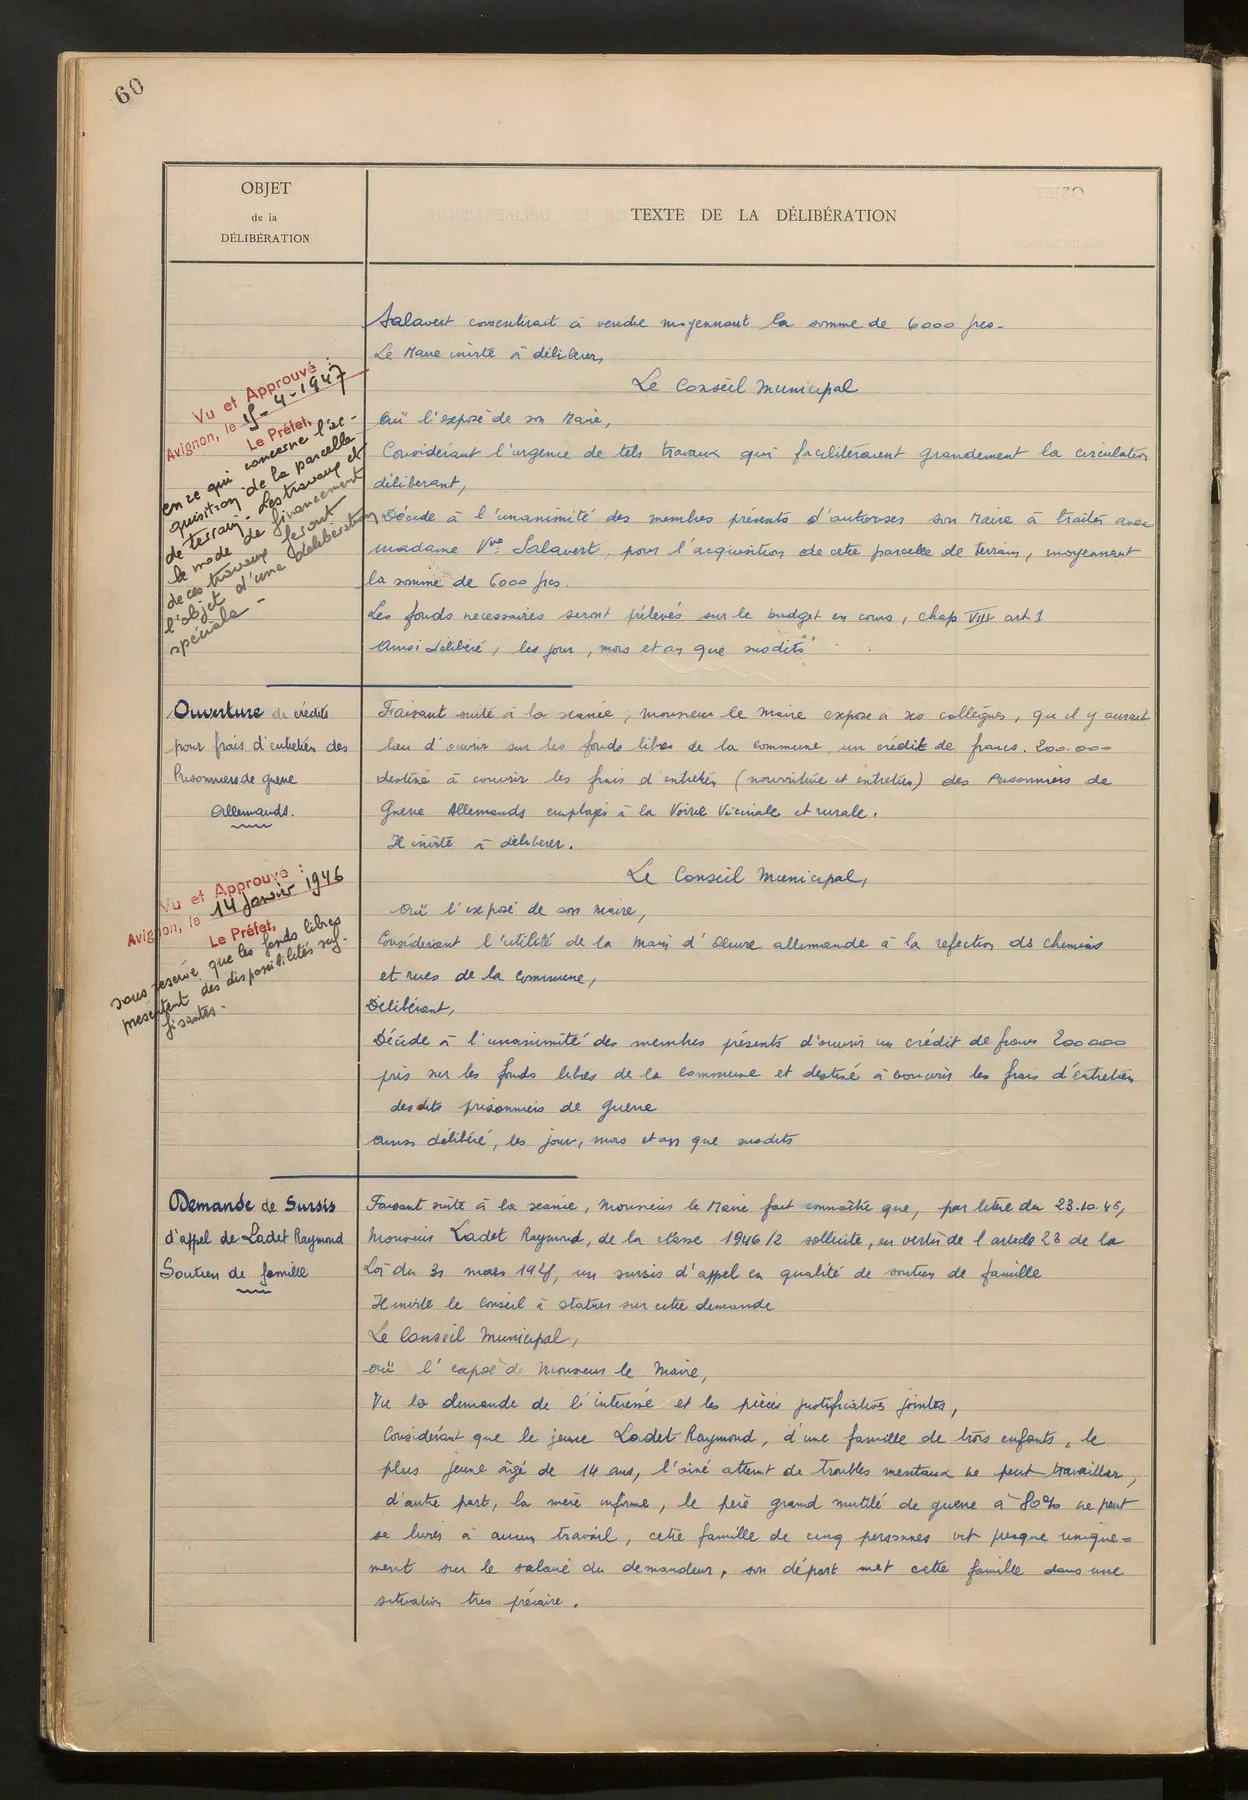 60
OBJET
de la
DÉLIBÉRATION
TEXTE DE LA DÉLIBÉRATION
Salavert consentirait à vendre moyennant la somme de 6000 frcs.
Le Maire invite à délibérer,
Le Conseil Municipal
Ouï l'exposé de son Maire,
Considérant l'urgence de tels travaux qui faciliteraient grandement la circulation
délibérant,
Décide à l'unanimité des membres présents d'autoriser son Maire à traiter avec
Madame Vve Salavert, pour l'acquisition de cette parcelle de terrain, moyennant
la somme de 6000 frcs.
Les fonds necessaires seront prélevés sur le budget en cours, chap VIII art 1
Ainsi délibéré, les jour, mois et an que susdits
Vu et Approuvé :
Avignon, le 15-4-1947
Le Préfet,
en ce qui concerne l'ac-
quisition de la parcelle
de terrain. Les travaux et
le mode de financement
de ces travaux feront
l'objet d'une délibération
spéciale -
Ouverture de crédits
pour frais d'entretien des
Prisonniers de guerre
Allemands.
Faisant suite à la séance, Monsieur le Maire expose à ses collègues, qu'il y aurait
lieu d'ouvrir sur les fonds libres de la commune, un crédit de francs. 200.000
destiné à couvrir les frais d'entretien (nourriture et entretien) des Prisonniers de
Guerre Allemands employés à la Voirie Vicinale et rurale.
Il invite à délibérer.
Le Conseil Municipal,
Ouï l'exposé de son Maire,
Considérant l'utilité de la main d'œuvre allemande à la refection ds chemins
et rues de la commune,
Délibérant,
Décide à l'unanimité des membres présents d'ouvrir un crédit de francs 200000
pris sur les fonds libres de la commune et destiné à couvrir les frais d'entretien
desdits prisonniers de guerre
Ainsi délibéré, les jour, mois et an que susdits
Vu et Approuvé :
Avignon, le 14 Janvier 1946
Le Préfet,
sous réserve que les fonds libres
présentent des disponibilités suf-
fisantes.
Demande de Sursis
d'appel de Ladet Raymond
Soutien de famille
Faisant suite à la séance, Monsieur le Maire fait connaître que, par lettre du 23.10.46,
Monsieur Ladet Raymond, de la classe 1946/2 sollicite, en vertu de l'article 23 de la
Loi du 31 mars 1928, un sursis d'appel en qualité de soutien de famille
Il invite le conseil à statuer sur cette demande
Le Conseil Municipal,
ouï l'exposé de Monsieur le Maire,
Vu la demande de l'interessé et les pièces justificatives jointes,
Considérant que le jeune Ladet Raymond, d'une famille de trois enfants, le
plus jeune âgé de 14 ans, l'ainé atteint de troubles mentaux ne peut travailler,
d'autre part, la mère infirme, le père grand mutilé de guerre à 80% ne peut
se livrer à aucun travail, cette famille de cinq personnes vit presque unique=
ment sur le salaire du demandeur, son départ met cette famille dans une
situation tres précaire.